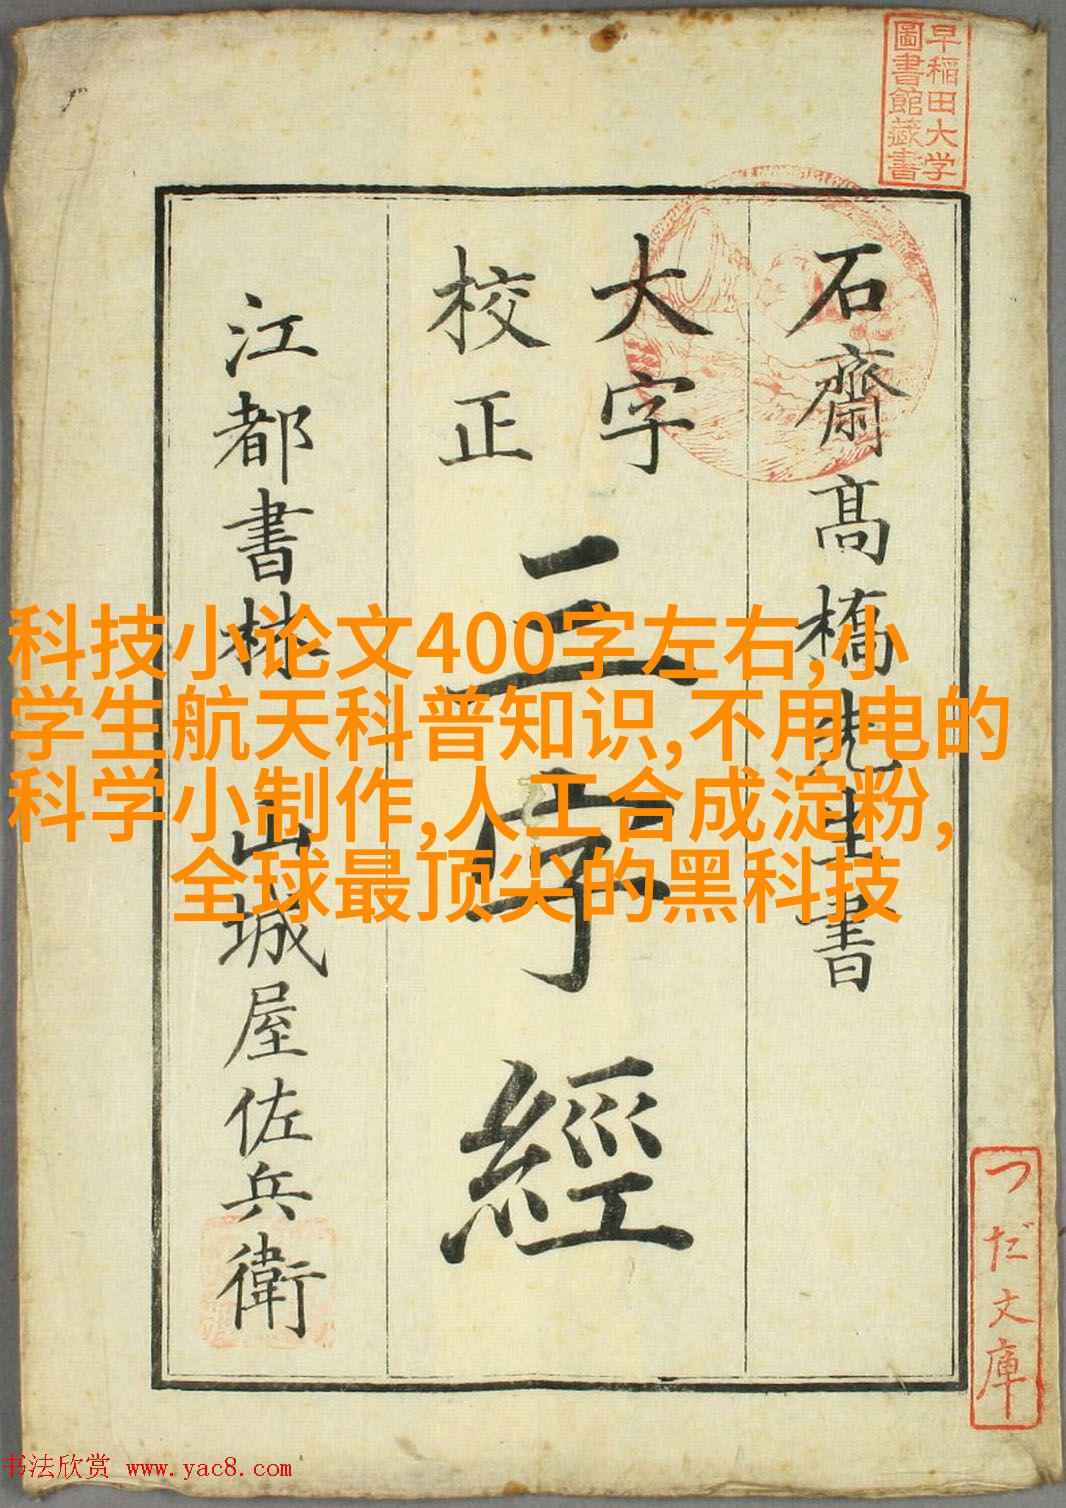 早稲田大学
圖書館藏書
石齋髙橋先生書
大字
校正
三字經
江都書林 山城屋佐兵衛
科技小论文400字左右,小
学生航天科普知识,不用电的
科学小制作,人工合成淀粉,
全球最顶尖的黑科技
つだ文庫
书法欣赏 www.yac8.com